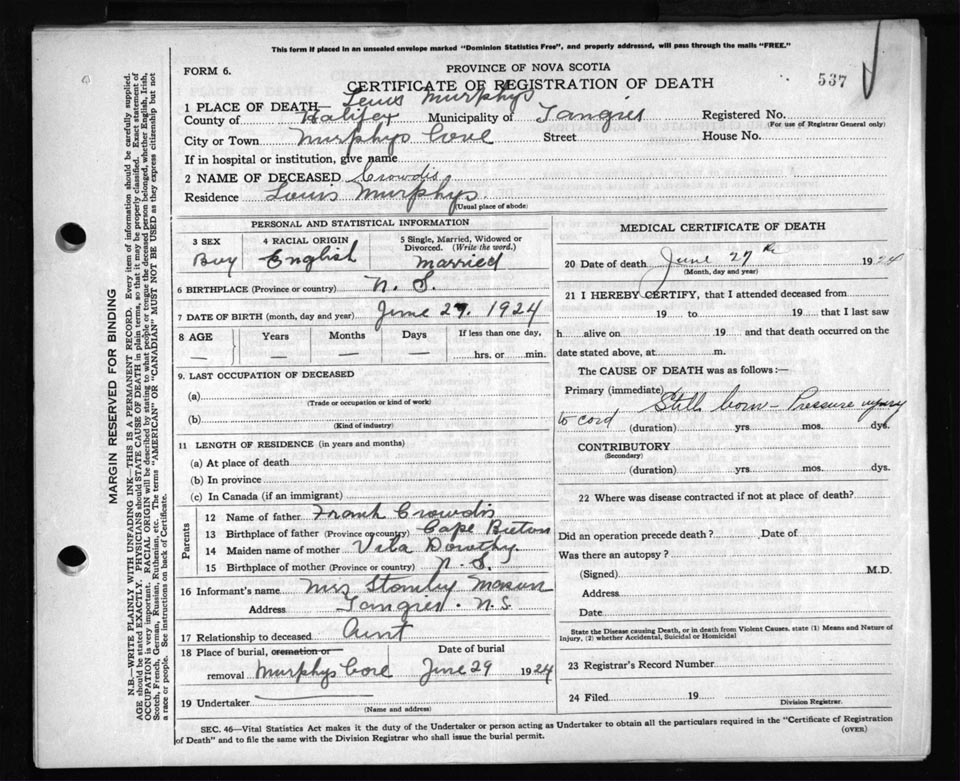 This form if placed in an unsealed envelope marked "Dominion Statistics Free", and properly addressed, will pass through the mails "FREE."
FORM 6.
PROVINCE OF NOVA SCOTIA
CERTIFICATE OF REGISTRATION OF DEATH
537
1 PLACE OF DEATH— Lewis Murphys
County of Halifax Municipality of Tangier Registered No.
(For use of Registrar General only)
City or Town Murphys Cove Street House No.
If in hospital or institution, give name
2 NAME OF DECEASED Crowdis
Residence Louis Murphys
(Usual place of abode)
PERSONAL AND STATISTICAL INFORMATION
3 SEX 4 RACIAL ORIGIN 5 Single, Married, Widowed or Divorced. (Write the word.)
Boy English married
6 BIRTHPLACE (Province or country) N. S.
7 DATE OF BIRTH (month, day and year) June 27. 1924
8 AGE Years Months Days If less than one day,
— — — — hrs. or min.
9. LAST OCCUPATION OF DECEASED
(a)
(Trade or occupation or kind of work)
(b)
(Kind of industry)
11 LENGTH OF RESIDENCE (in years and months)
(a) At place of death
(b) In province
(c) In Canada (if an immigrant)
Parents
12 Name of father Frank Crowdis
13 Birthplace of father (Province or country) Cape Breton
14 Maiden name of mother Dorothy.
15 Birthplace of mother (Province or country) N. S.
16 Informant's name Mrs Stanly Mason
Address Tangier. N.S.
17 Relationship to deceased Aunt
18 Place of burial, cremation or Date of burial
removal Murphys Cove June 29 1924
19 Undertaker
(Name and address)
MEDICAL CERTIFICATE OF DEATH
20 Date of death June 27 th 1924
(Month, day and year)
21 I HEREBY CERTIFY, that I attended deceased from
19 to 19 that I last saw
h alive on 19 and that death occurred on the
date stated above, at m.
The CAUSE OF DEATH was as follows:—
Primary (immediate) Still born - Pressure injury
to cord (duration) yrs. mos. dys.
CONTRIBUTORY
(Secondary)
(duration) yrs. mos. dys.
22 Where was disease contracted if not at place of death?
Did an operation precede death? Date of
Was there an autopsy?
(Signed) M.D.
Address
Date
State the Disease causing Death, or in death from Violent Causes, state (1) Means and Nature of Injury, (2) whether Accidental, Suicidal or Homicidal
23 Registrar's Record Number
24 Filed 19
Division Registrar.
SEC. 46—Vital Statistics Act makes it the duty of the Undertaker or person acting as Undertaker to obtain all the particulars required in the "Certificate of Registration
of Death" and to file the same with the Division Registrar who shall issue the burial permit.
(OVER)
MARGIN RESERVED FOR BINDING
N.B.—WRITE PLAINLY, WITH UNFADING INK—THIS IS A PERMANENT RECORD. Every item of information should be carefully supplied.
AGE should be stated EXACTLY. PHYSICIANS should STATE CAUSE OF DEATH in plain terms, so that it may be properly classified. Exact statement of
OCCUPATION is very important. RACIAL ORIGIN will be described by stating to what people or tongue the deceased person belonged, whether English, Irish,
Scotch, French, German, Russian, Ruthenian, etc. The terms "AMERICAN" OR "CANADIAN" MUST NOT BE USED as they express citizenship but not
a race or people. See instructions on back of Certificate.